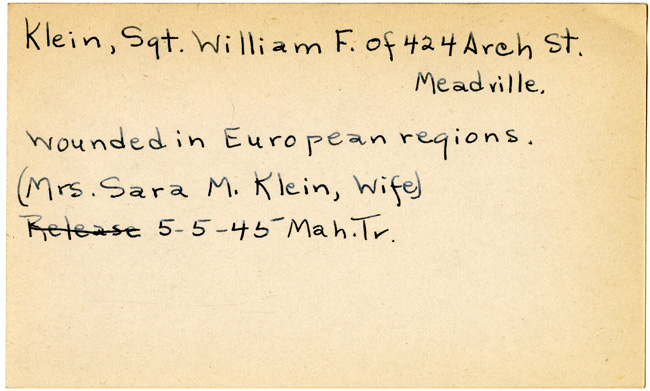 Klein, Sgt. William F. of 424 Arch St.
Meadville.
Wounded in European regions.
(Mrs. Sara M. Klein, Wife)
Release 5-5-45 Mah. Tr.